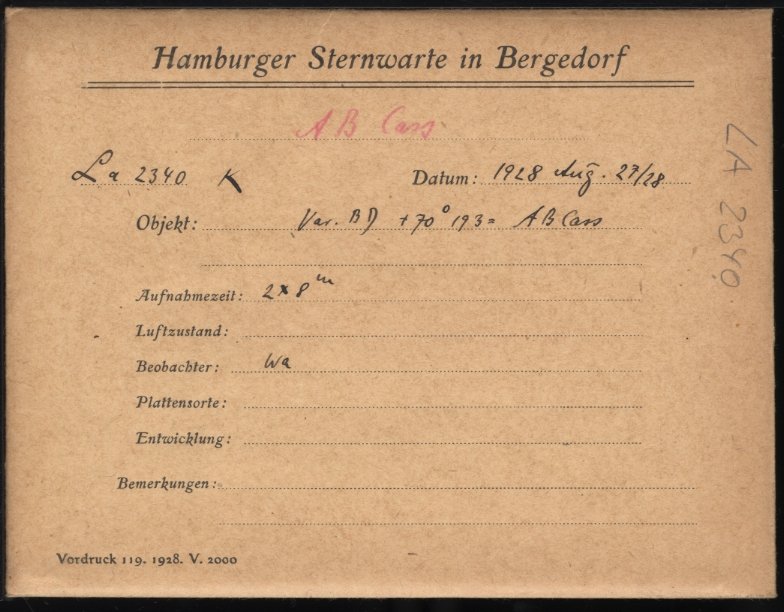 Hamburger Sternwarte in Bergedorf
AB Cass
La 2340 K Datum: 1928 Aug. 27/28
Objekt: Var. BD +70° 193 = AB Cass
Aufnahmezeit: 2 x 8 m
Luftzustand:
Beobachter: Wa
Plattensorte:
Entwicklung:
Bemerkungen:
Vordruck 119. 1928. V. 2000
LA 2340